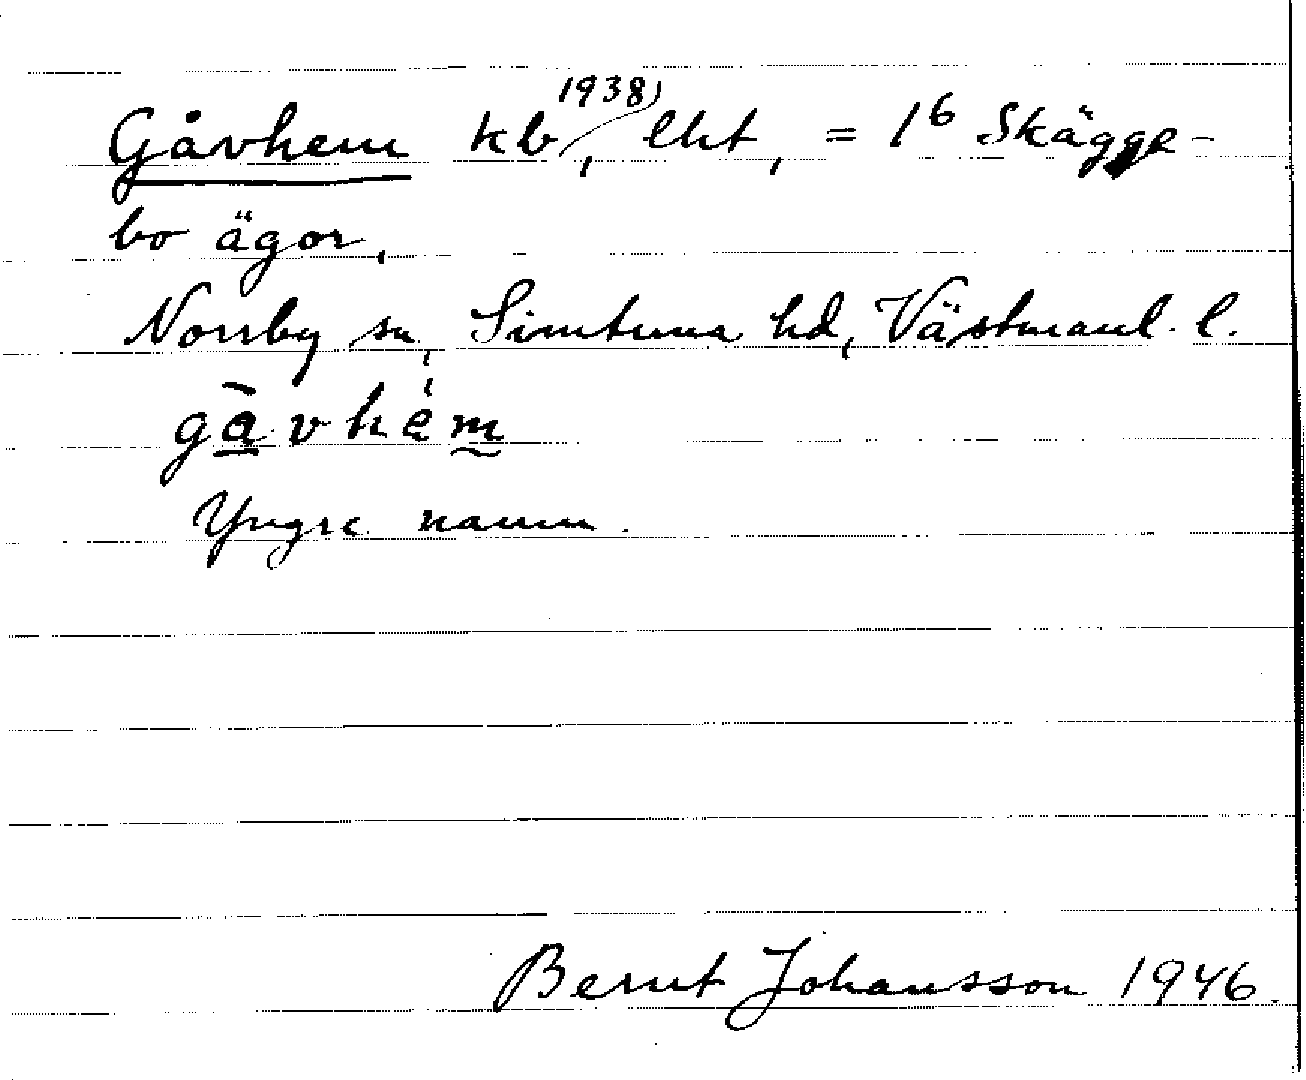 Gåvhem kb 1938, lht, = 1⁶ Skägge-
bo ägor,
Norrby sn, Simtuna hd, Västmanl. l.
gå̀vhé̩m
Yngre namn.
Bernt Johansson 1946.